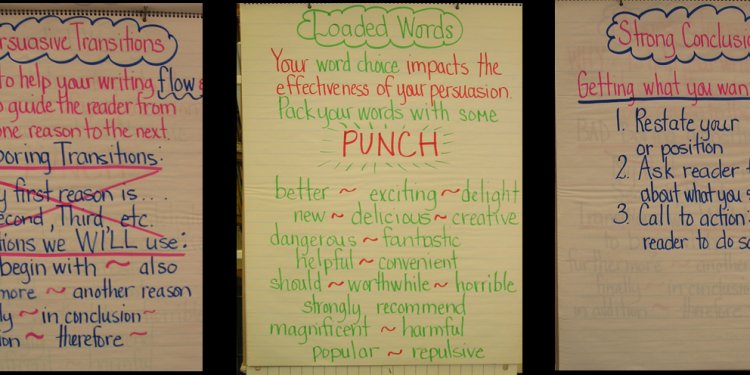 rsuasive Transitions
to help your writing flow
guide the reader from
one reason to the next.
oring Transitions:
y first reason is....
econd, Third, etc.
tions we WILL use:
begin with ~ also
more ~ another reason
ly ~ in conclusion ~
ion ~ therefore ~
Loaded Words
Your word choice impacts the
effectiveness of your persuasion.
Pack your words with some
PUNCH
better ~ exciting ~ delight
new ~ delicious ~ creative
dangerous ~ fantastic
helpful ~ convenient
should ~ worthwhile ~ horrible
strongly recommend
magnificent ~ harmful
popular ~ repulsive
Strong Conclusio
Getting what you wan
1. Restate your
or position
2. Ask reader t
about what you s
3. Call to action.
reader to do so